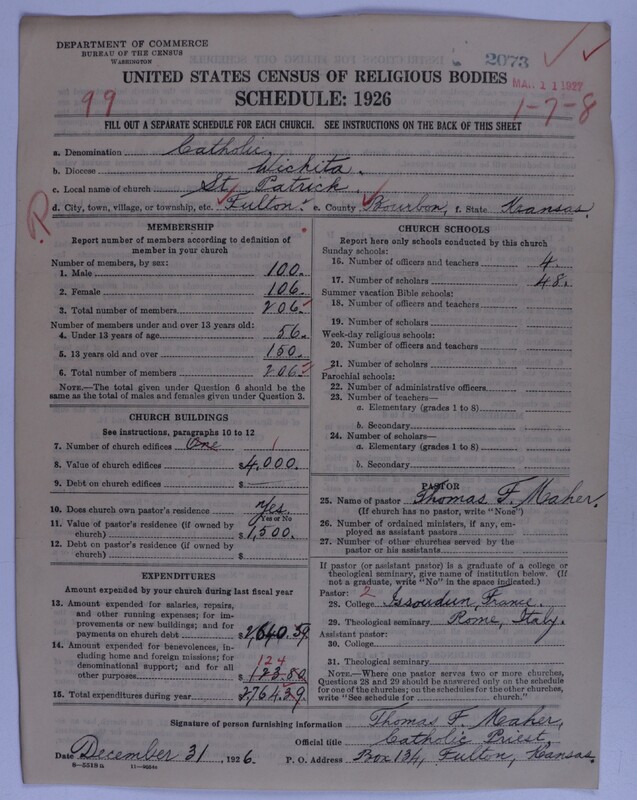 DEPARTMENT OF COMMERCE
BUREAU OF THE CENSUS
WASHINGTON
2073
UNITED STATES CENSUS OF RELIGIOUS BODIES
MAR 11 1927
99
SCHEDULE: 1926
1-7-8
FILL OUT A SEPARATE SCHEDULE FOR EACH CHURCH. SEE INSTRUCTIONS ON THE BACK OF THIS SHEET
a. Denomination Catholic.
b. Diocese Wichita.
c. Local name of church St. Patrick.
R
d. City, town, village, or township, etc. Fulton. e. County Bourbon, f. State Kansas.
MEMBERSHIP
Report number of members according to definition of
member in your church
Number of members, by sex:
1. Male 100.
2. Female 106.
3. Total number of members 206.
Number of members under and over 13 years old:
4. Under 13 years of age 56.
5. 13 years old and over 150.
6. Total number of members 206.
NOTE.—The total given under Question 6 should be the
same as the total of males and females given under Question 3.
CHURCH BUILDINGS
See instructions, paragraphs 10 to 12
7. Number of church edifices One 1
8. Value of church edifices $4,000.
9. Debt on church edifices $
10. Does church own pastor's residence Yes.
Yes or No
11. Value of pastor's residence (if owned by
church) $1,500.
12. Debt on pastor's residence (if owned by
church) $
EXPENDITURES
Amount expended by your church during last fiscal year
13. Amount expended for salaries, repairs,
and other running expenses; for im-
provements or new buildings; and for
payments on church debt $2,640.59
14. Amount expended for benevolences, in-
cluding home and foreign missions; for
denominational support; and for all
other purposes $123.80
124
15. Total expenditures during year 2764.39
CHURCH SCHOOLS
Report here only schools conducted by this church
Sunday schools:
16. Number of officers and teachers 4.
17. Number of scholars 48.
Summer vacation Bible schools:
18. Number of officers and teachers
19. Number of scholars
Week-day religious schools:
20. Number of officers and teachers
21. Number of scholars
Parochial schools:
22. Number of administrative officers
23. Number of teachers—
a. Elementary (grades 1 to 8)
b. Secondary
24. Number of scholars—
a. Elementary (grades 1 to 8)
b. Secondary
PASTOR
25. Name of pastor Thomas F. Maher.
(If church has no pastor, write "None")
26. Number of ordained ministers, if any, em-
ployed as assistant pastors
27. Number of other churches served by the
pastor or his assistants
If pastor (or assistant pastor) is a graduate of a college or
theological seminary, give name of institution below. (If
not a graduate, write "No" in the space indicated.)
Pastor: 2
28. College Issoudun, France.
29. Theological seminary Rome, Italy.
Assistant pastor:
30. College
31. Theological seminary
NOTE.—Where one pastor serves two or more churches,
Questions 28 and 29 should be answered only on the schedule
for one of the churches; on the schedules for the other churches,
write "See schedule for church."
Signature of person furnishing information Thomas F. Maher,
Official title Catholic Priest.
Date December 31, 1926. P. O. Address Box 134, Fulton, Kansas.
8-5518a